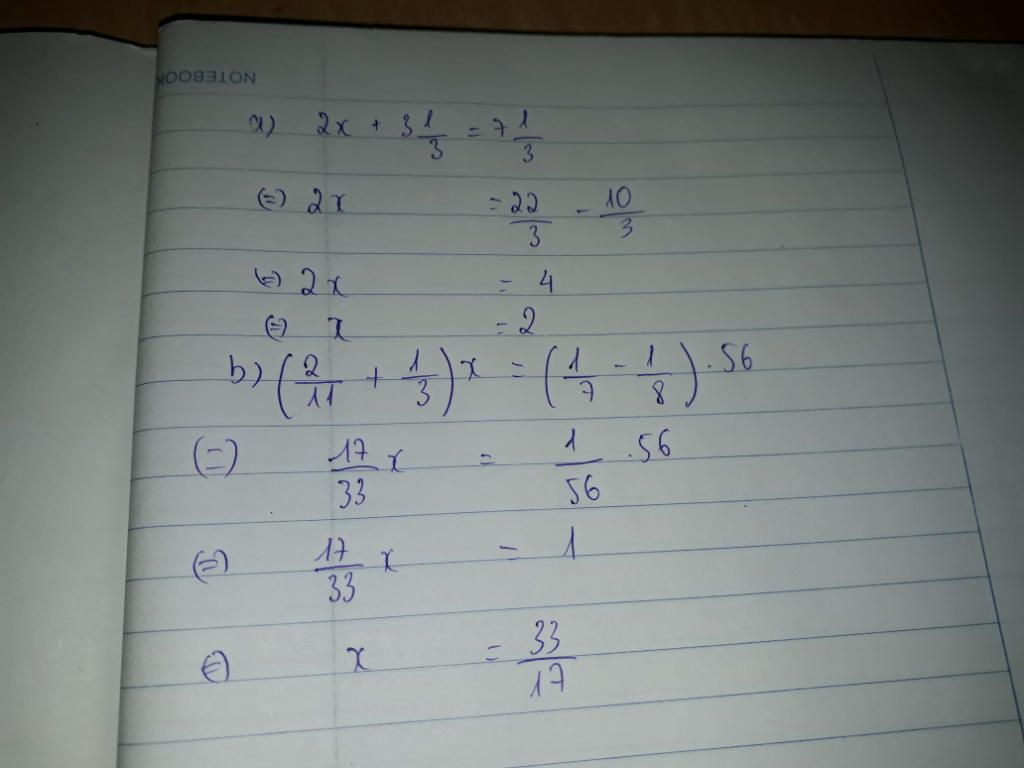 NOTEBOOK
a) 2x + 3 1/3 = 7 1/3
(=) 2x = 22/3 - 10/3
(=) 2x = 4
(=) x = 2
b) (2/11 + 1/3)x = (1/7 - 1/8).56
(=) 17/33 x = 1/56 .56
(=) 17/33 x = 1
(=) x = 33/17